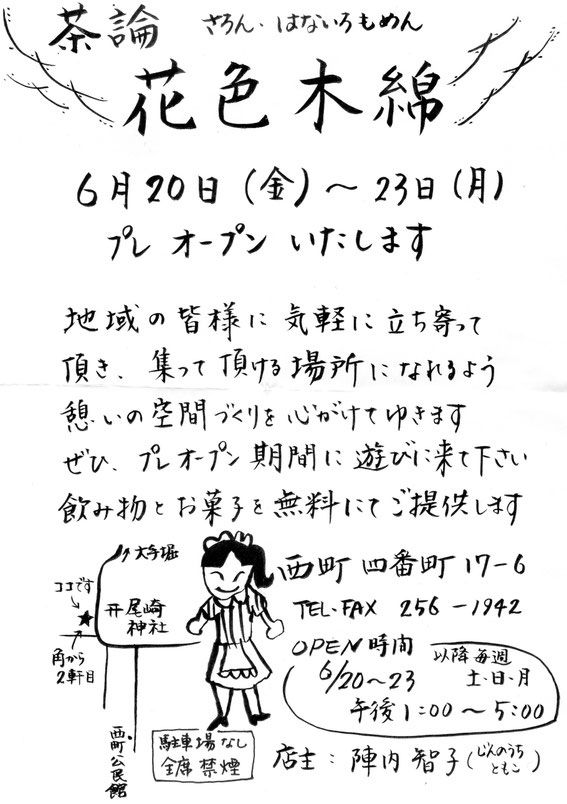 茶論 さろん・はないろもめん
花色木綿
6月20日(金)〜23日(月)
プレオープンいたします
地域の皆様に気軽に立ち寄って
頂き、集って頂ける場所になれるよう
憩いの空間づくりを心がけてゆきます
ぜひ、プレオープン期間に遊びに来て下さい
飲み物とお菓子を無料にてご提供します
大手堀
ココです
尾崎
神社
角から
2軒目
西町公民館
西町四番町17-6
TEL・FAX 256-1942
OPEN時間
6/20〜23
以降毎週
土・日・月
午後1:00〜5:00
駐車場なし
全席禁煙
店主:陣内智子(じんのうち ともこ)